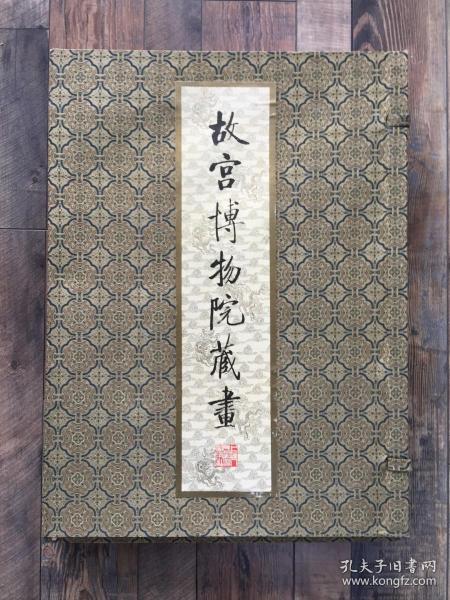 故宫博物院藏畫
孔夫子旧书网
www.kongfz.com